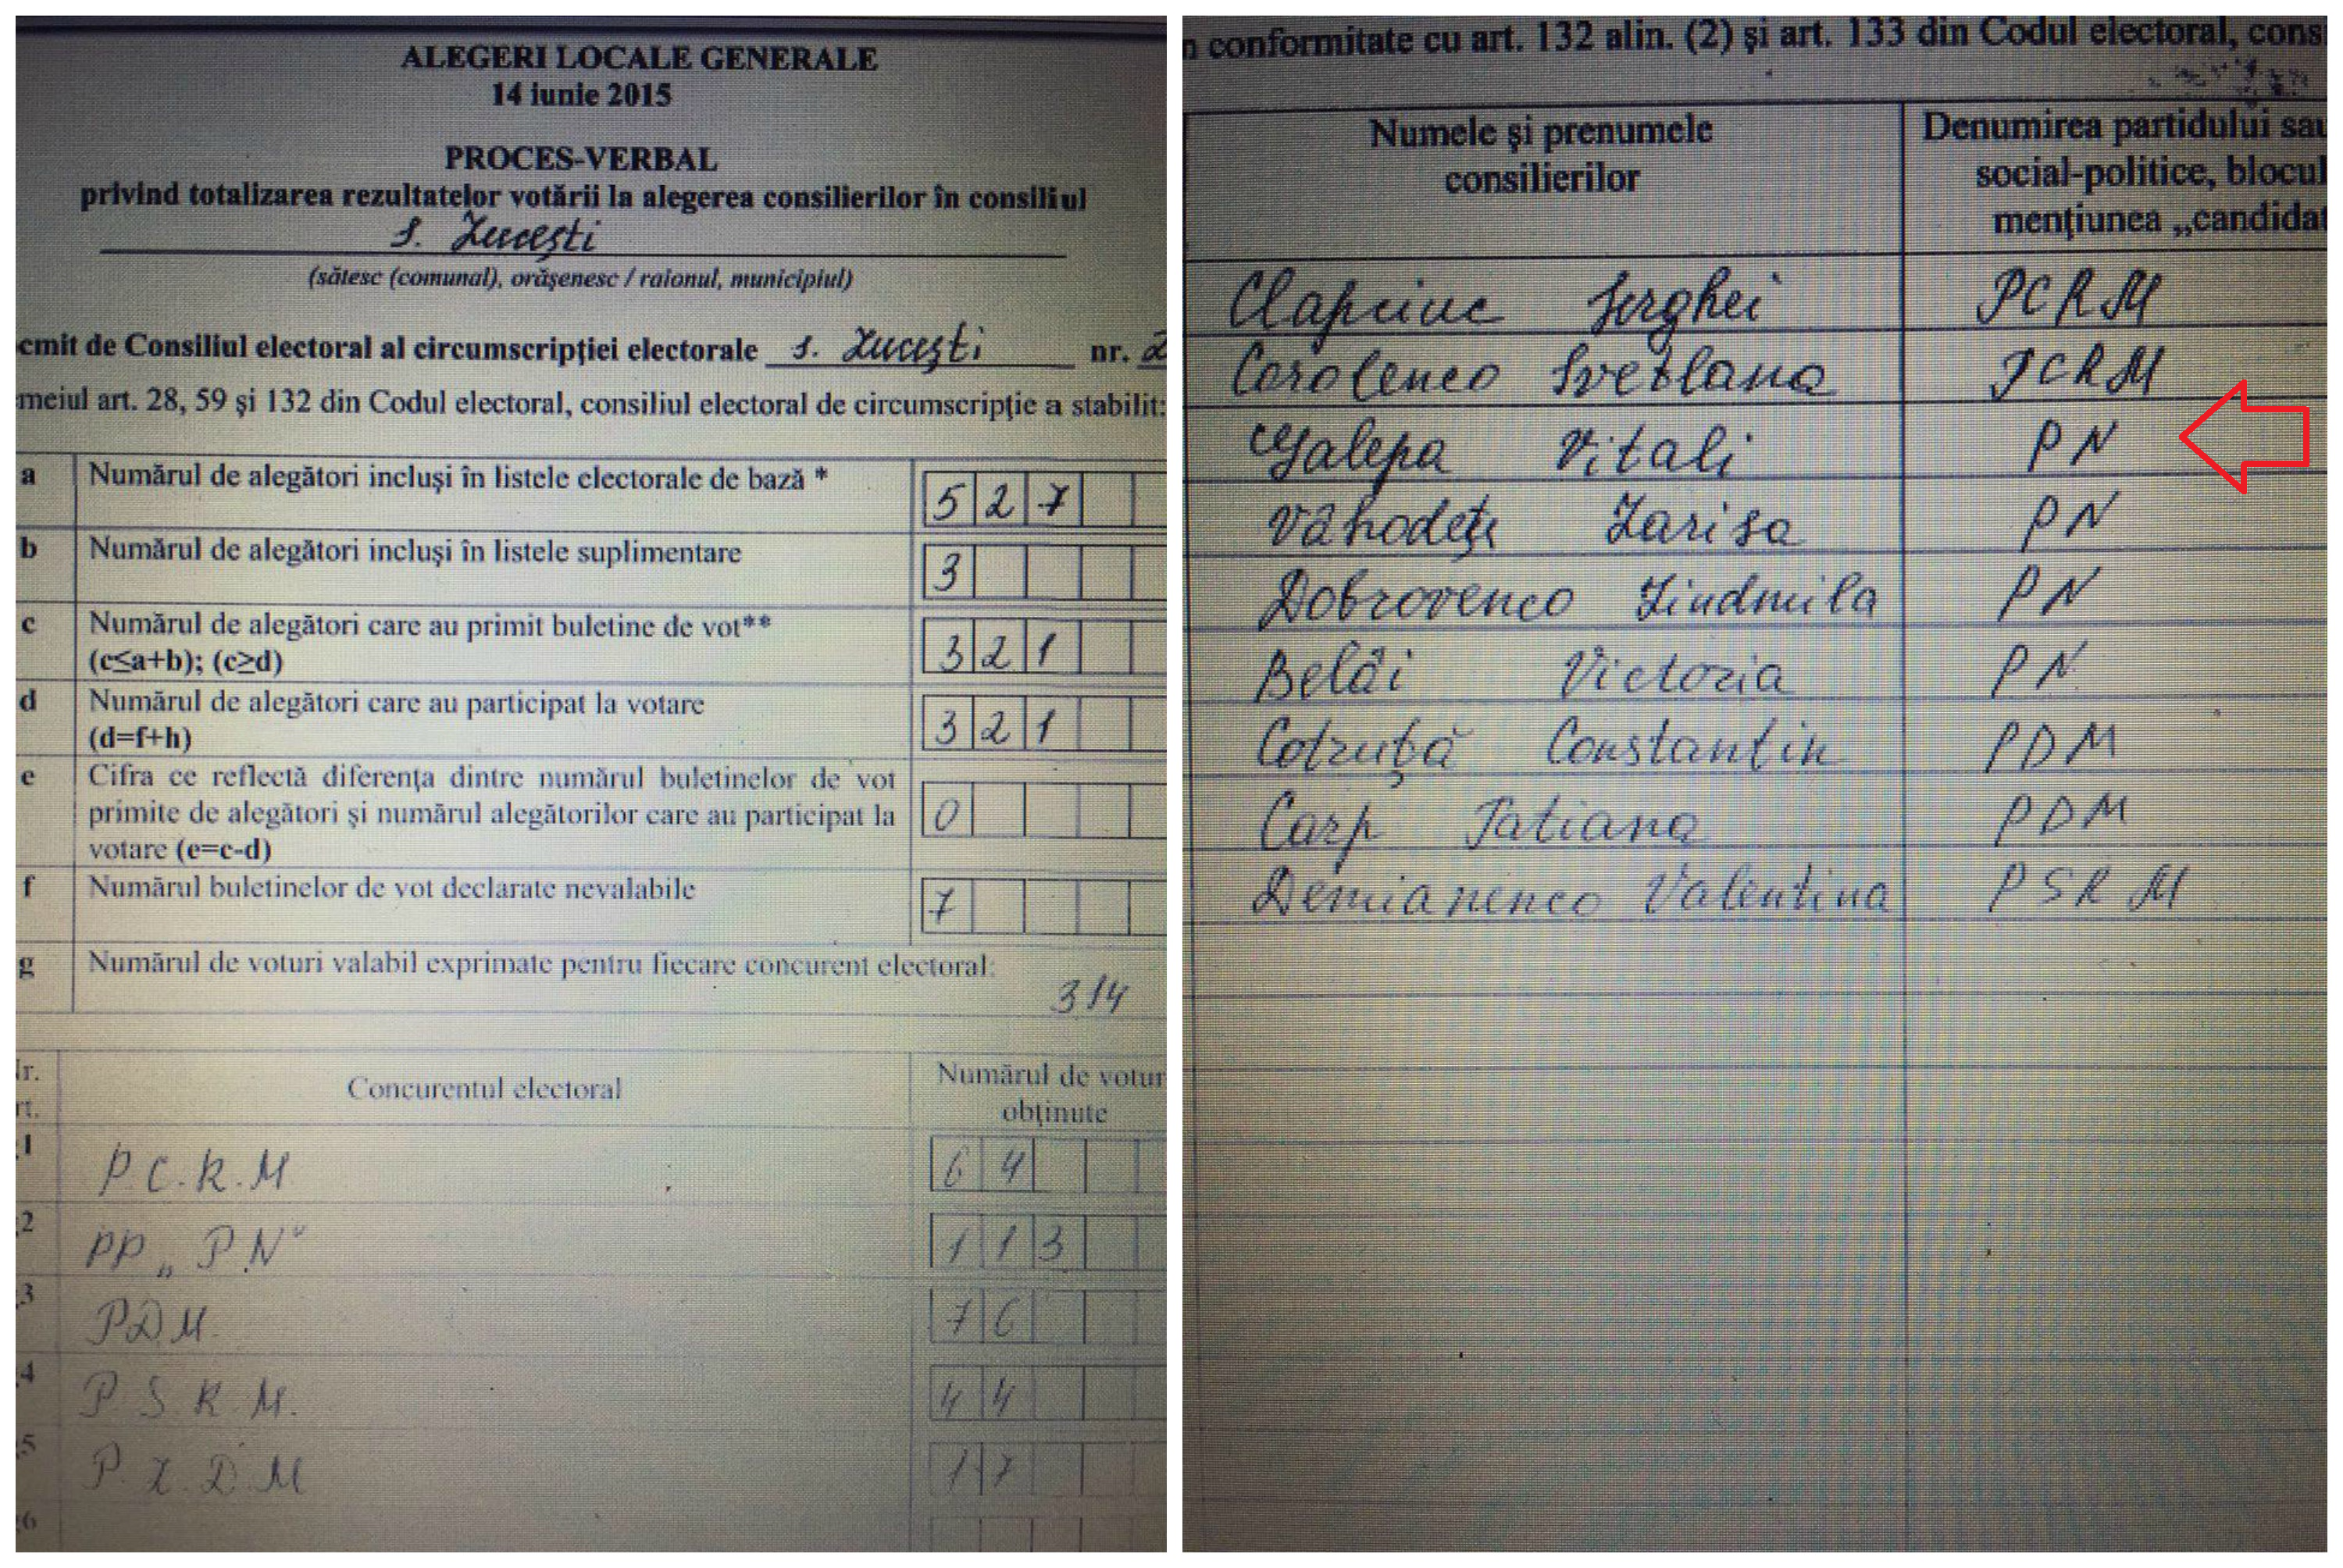 ALEGERI LOCALE GENERALE
14 iunie 2015
PROCES-VERBAL
privind totalizarea rezultatelor votării la alegerea consilierilor în consiliul
s. Lucești
(sătesc (comunal), orășenesc / raionul, municipiul)
emit de Consiliul electoral al circumscripției electorale s. Lucești nr. 2
meiul art. 28, 59 și 132 din Codul electoral, consiliul electoral de circumscripție a stabilit:
a Numărul de alegători incluși în listele electorale de bază * 527
b Numărul de alegători incluși în listele suplimentare 3
c Numărul de alegători care au primit buletine de vot** 321
(c≤a+b); (c≥d)
d Numărul de alegători care au participat la votare 321
(d=f+h)
e Cifra ce reflectă diferența dintre numărul buletinelor de vot
primite de alegători și numărul alegătorilor care au participat la 0
votare (e=c-d)
f Numărul buletinelor de vot declarate nevalabile 7
g Numărul de voturi valabil exprimate pentru fiecare concurent electoral:
314
Concurentul electoral
Numărul de votur
obținute
1 P.C.R.M 64
2 PP „P.N" 113
3 PDM. 76
4 P S R M. 44
5 P. L. D. M 17
6
n conformitate cu art. 132 alin. (2) și art. 133 din Codul electoral, cons
Numele și prenumele
consilierilor
Denumirea partidului sau
social-politice, blocul
mențiunea „candidat
Clapciuc Serghei PCRM
Corolenco Svetlana PCRM
Galepa Vitali PN
Vahodeți Larisa PN
Dobrovenco Liudmila PN
Belâi Victoria PN
Cotruță Constantin PDM
Carp Tatiana PDM
Demianenco Valentina PSRM